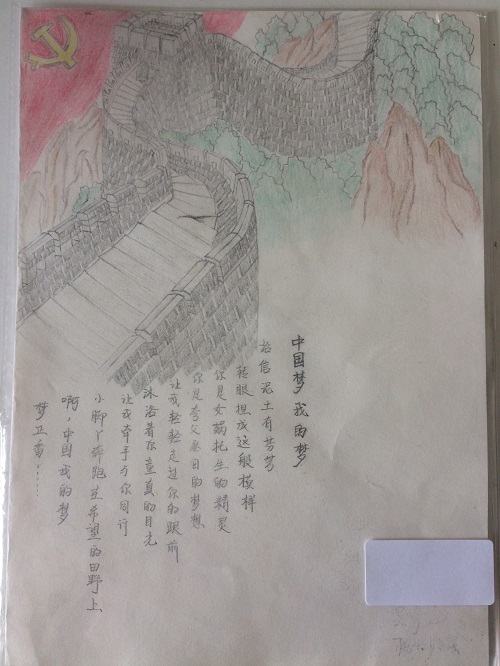 中国梦 我的梦
相信泥土有芬芳
转眼捏成这般模样
你是女娲托生的精灵
你是夸父追日的梦想
让我轻轻走过你的跟前
沐浴着你童真的目光
让我牵手与你同行
小脚丫奔跑在希望的田野上
啊，中国 我的梦
梦正香……